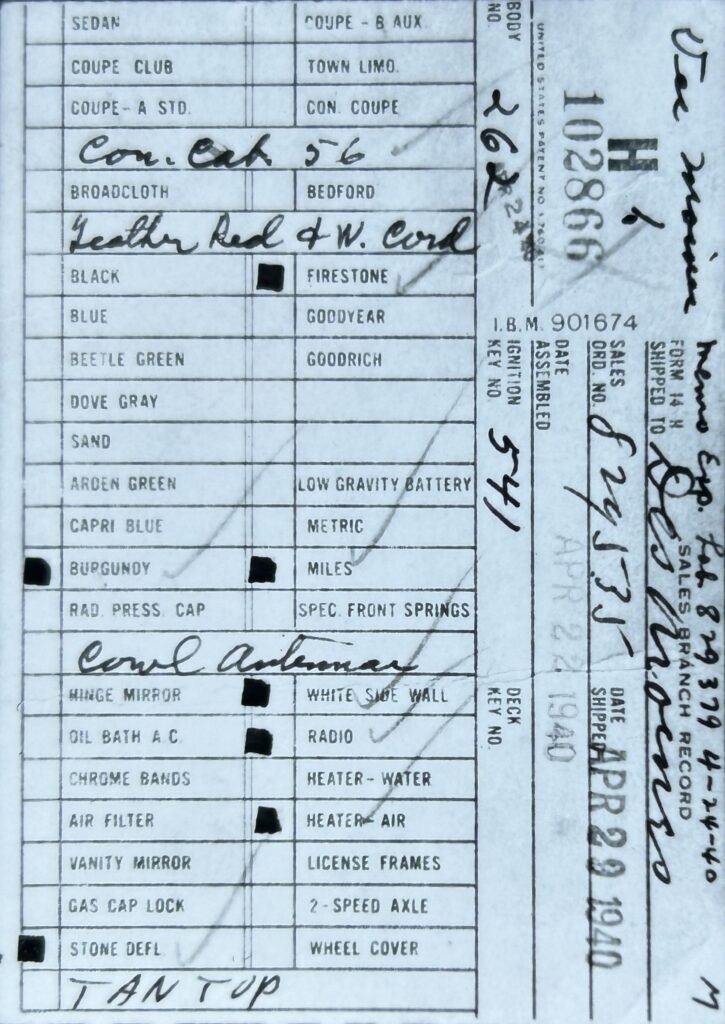 SEDAN COUPE - B AUX.
COUPE CLUB TOWN LIMO.
COUPE - A STD. CON. COUPE
Con. Cab. 56
BROADCLOTH BEDFORD
Leather Red & W. Cord
BLACK FIRESTONE
BLUE GOODYEAR
BEETLE GREEN GOODRICH
DOVE GRAY
SAND
ARDEN GREEN LOW GRAVITY BATTERY
CAPRI BLUE METRIC
BURGUNDY MILES
RAD. PRESS. CAP SPEC. FRONT SPRINGS
Cowl Antennae
HINGE MIRROR WHITE SIDE WALL
OIL BATH A.C. RADIO
CHROME BANDS HEATER - WATER
AIR FILTER HEATER - AIR
VANITY MIRROR LICENSE FRAMES
GAS CAP LOCK 2-SPEED AXLE
STONE DEFL. WHEEL COVER
TAN TOP
Memo Exp. 829379 4-24-40
SALES BRANCH RECORD
FORM 14 H
SHIPPED TO Des Moines
H
102866
I.B.M. 901674
SALES ORD. NO. 829535
DATE SHIPPED APR 29 1940
DATE ASSEMBLED APR 22 1940
UNITED STATES PATENT NO.
BODY NO. 262
IGNITION KEY NO. 541
DECK KEY NO.